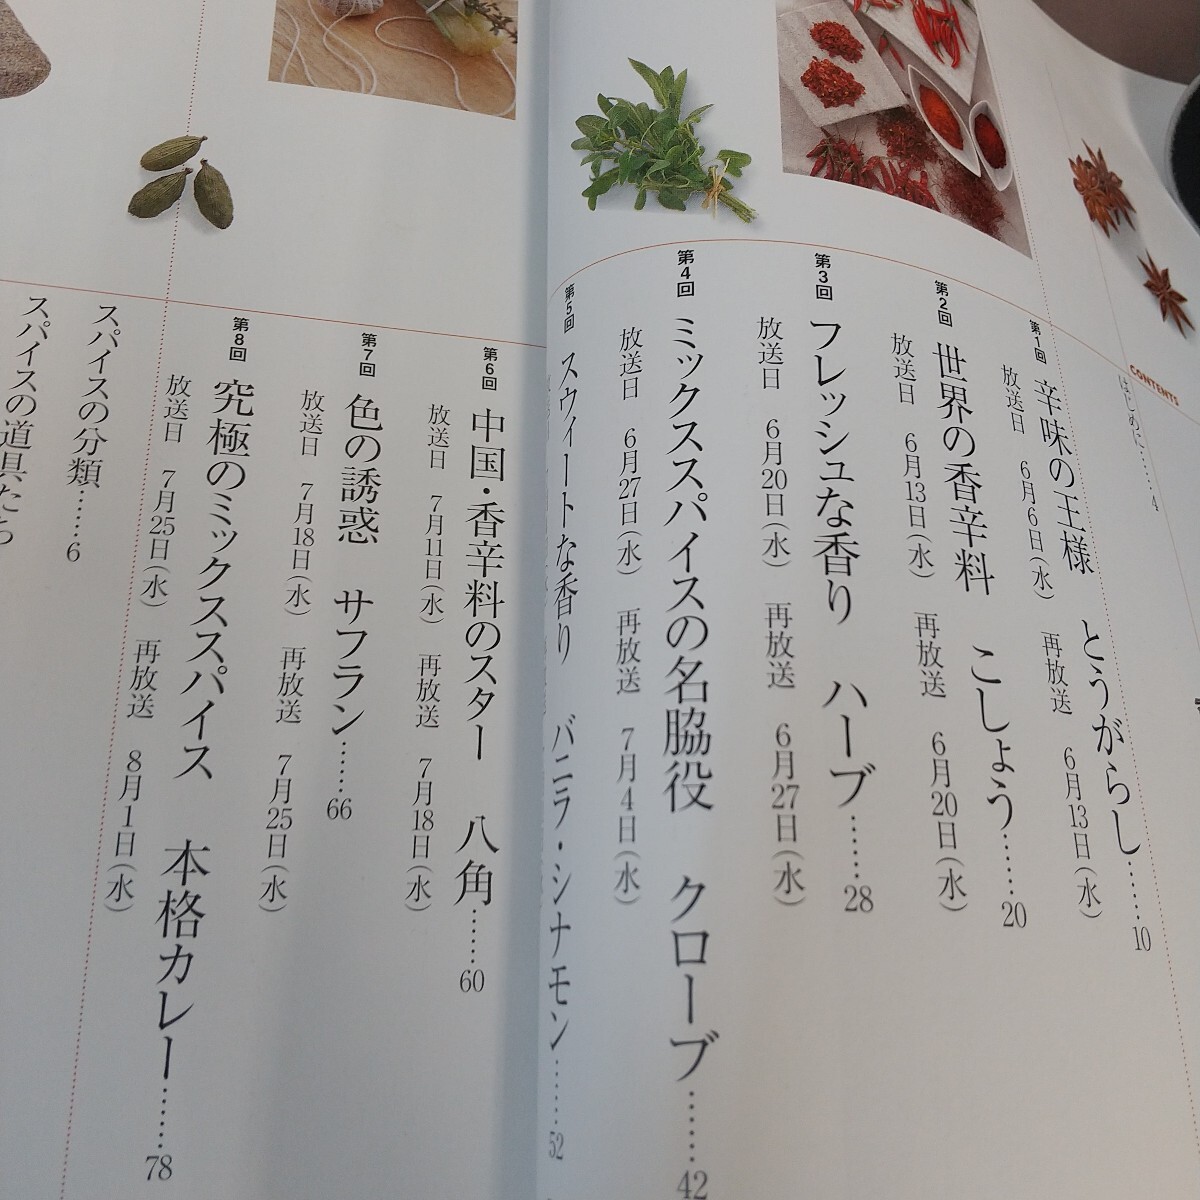 CONTENTS
はじめに……4
第1回 辛味の王様 とうがらし……10
放送日 6月6日(水) 再放送 6月13日(水)
第2回 世界の香辛料 こしょう……20
放送日 6月13日(水) 再放送 6月20日(水)
第3回 フレッシュな香り ハーブ……28
放送日 6月20日(水) 再放送 6月27日(水)
第4回 ミックススパイスの名脇役 クローブ……42
放送日 6月27日(水) 再放送 7月4日(水)
第5回 スウィートな香り バニラ・シナモン……52
第6回 中国・香辛料のスター 八角……60
放送日 7月11日(水) 再放送 7月18日(水)
第7回 色の誘惑 サフラン……66
放送日 7月18日(水) 再放送 7月25日(水)
第8回 究極のミックススパイス 本格カレー……78
放送日 7月25日(水) 再放送 8月1日(水)
スパイスの分類……6
スパイスの道具たち